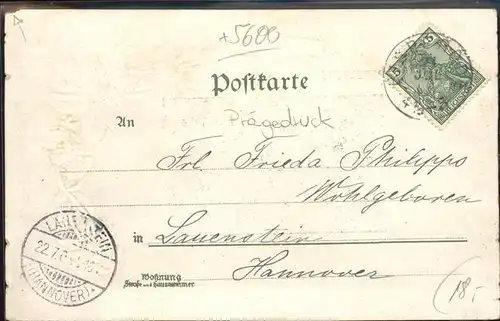 +5680
Postkarte
Prägedruck
An
Frl. Frieda Philipps
Wohlgeboren
in Lauenstein
Hannover
Wohnung
Straße und Hausnummer
LAUENSTEIN
22.7.
(HANNOVER)
5 5
18,-